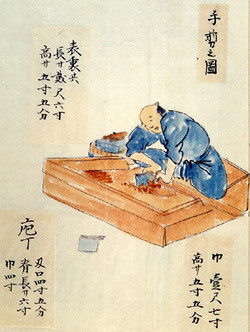 手剪之圖
表裏共
長サ貳尺六寸
高サ五寸五分
巾壹尺七寸
高サ五寸五分
庖丁
刃口四寸五分
脊長サ六寸
巾四寸